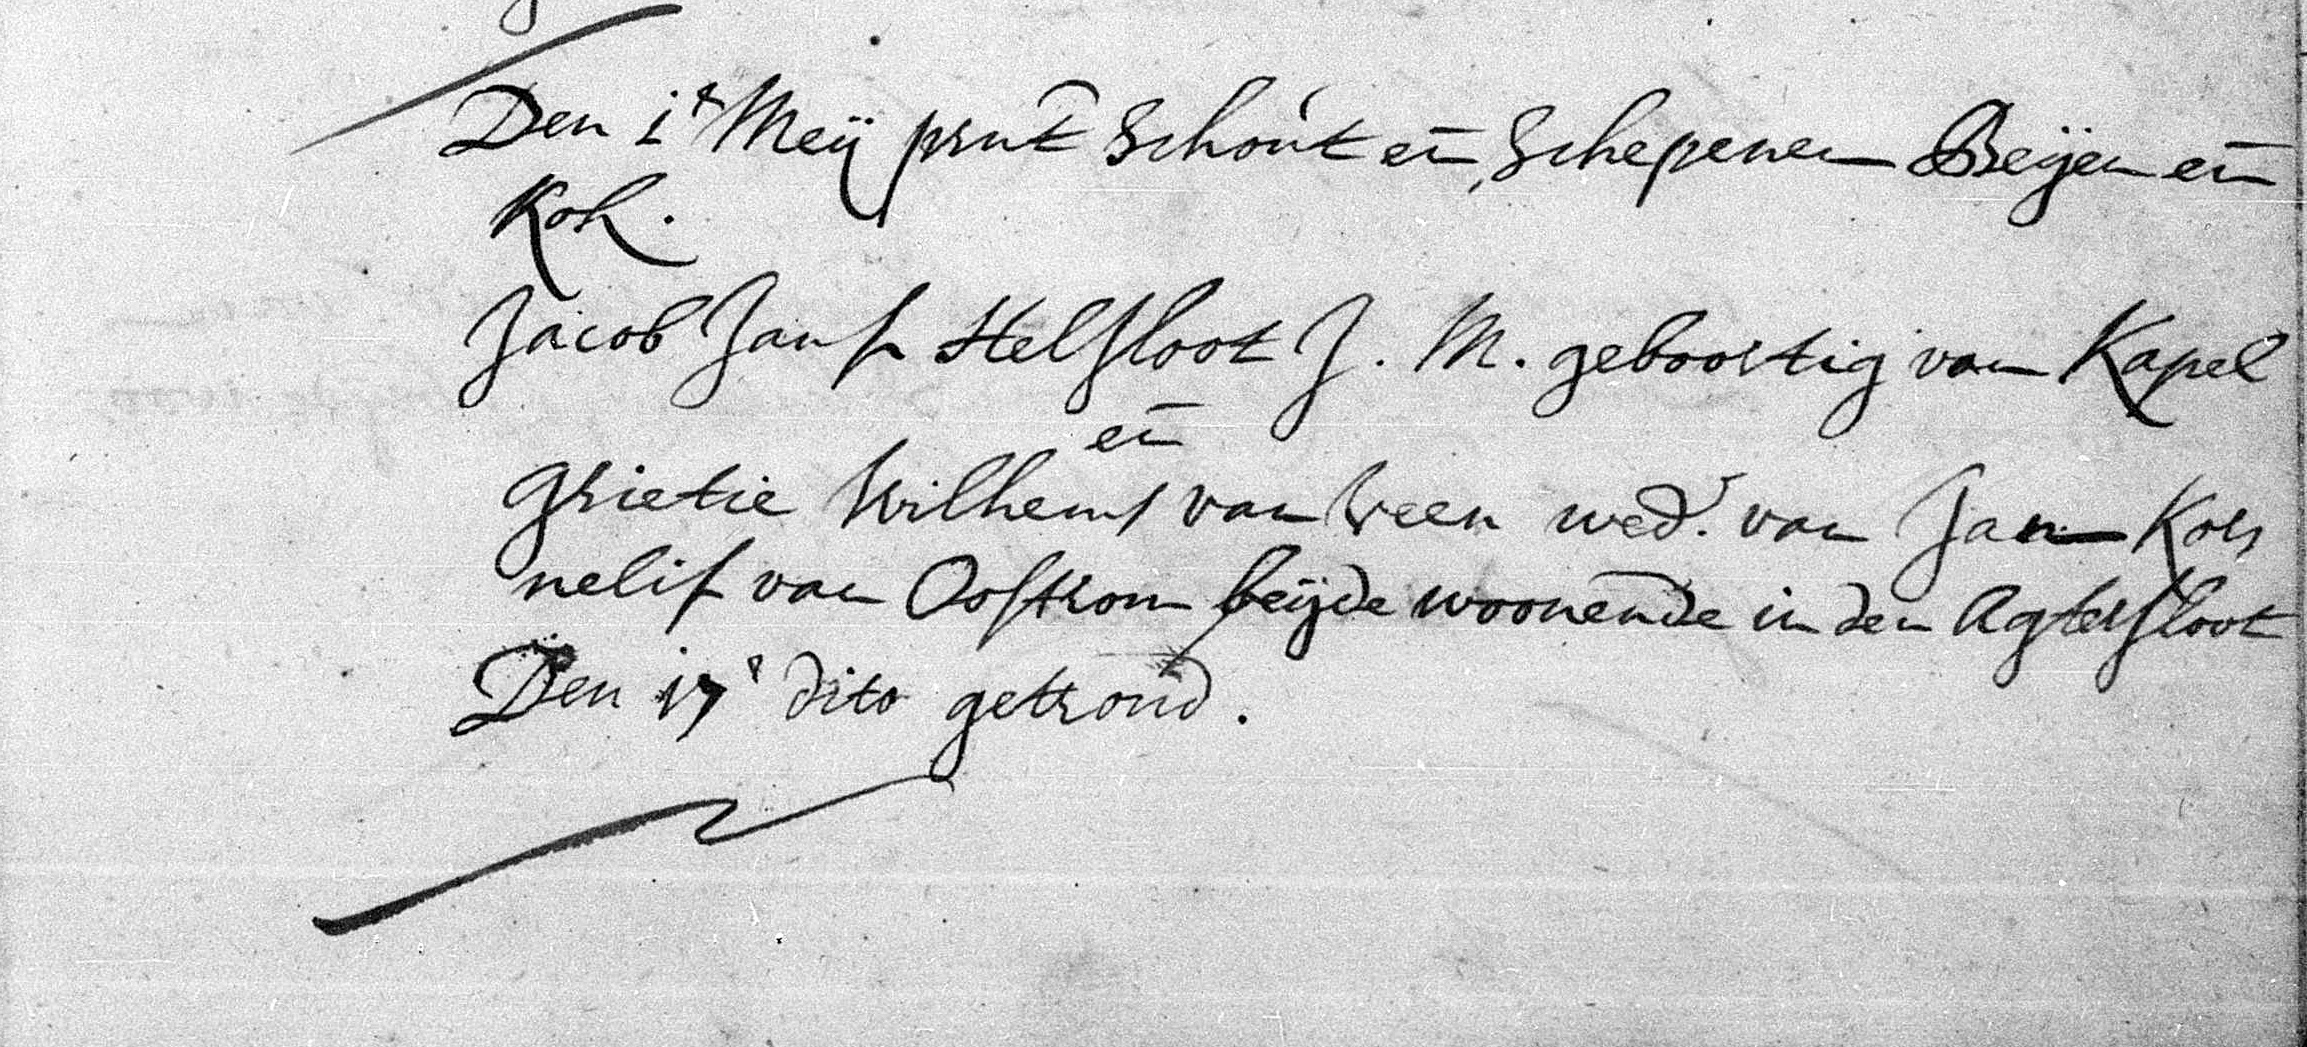 Den 1e Meij prnt Schout en Schepenen Beijen en
Kok.
Jacob Jansz Helsloot J. M. geboortig van Kapel
en
Grietie Wilhems van Veen wed.e van Jan Kor
nelis van Oostrom beijde woonende in den Agtersloot
Den 17e dito getroud.